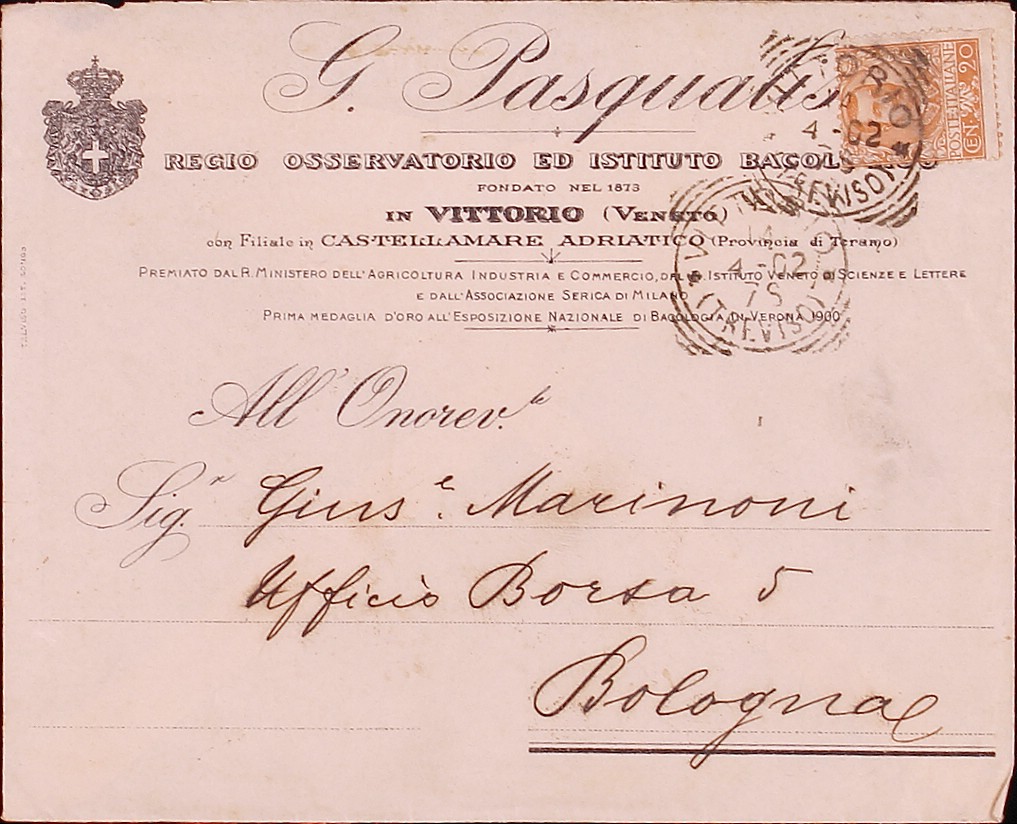 G. Pasqualis
REGIO OSSERVATORIO ED ISTITUTO BACOLOGICO
FONDATO NEL 1873
IN VITTORIO (VENETO)
con Filiale in CASTELLAMARE ADRIATICO (Provincia di Teramo)
PREMIATO DAL R. MINISTERO DELL'AGRICOLTURA INDUSTRIA E COMMERCIO, DAL R. ISTITUTO VENETO DI SCIENZE E LETTERE
E DALL'ASSOCIAZIONE SERICA DI MILANO
PRIMA MEDAGLIA D'ORO ALL'ESPOSIZIONE NAZIONALE DI BACOLOGIA IN VERONA 1900
POSTE·ITALIANE
CENT. 20
VITTORIO
4-02
(TREVISO)
VITTORIO
14
4-02
7S
(TREVISO)
TREVISO LIT. LONGO
All' Onorev.le
Sig.r Gius.e Marinoni
Ufficio Borsa 5
Bologna